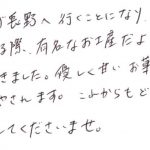 長野へ行くことになり
る際、有名なお土産だよ
きました。優しく甘いお菓
やされます。これからもど
してくださいませ。